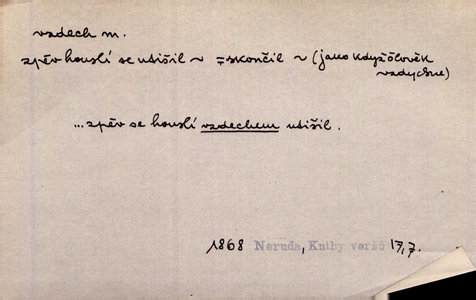 vzdech m.
zpěv houslí se utišil ~ = skončil ~ (jako když člověk
vzdychne)
...zpěv se houslí vzdechem utišil.
1868 Neruda, Knihy veršů 17,7.